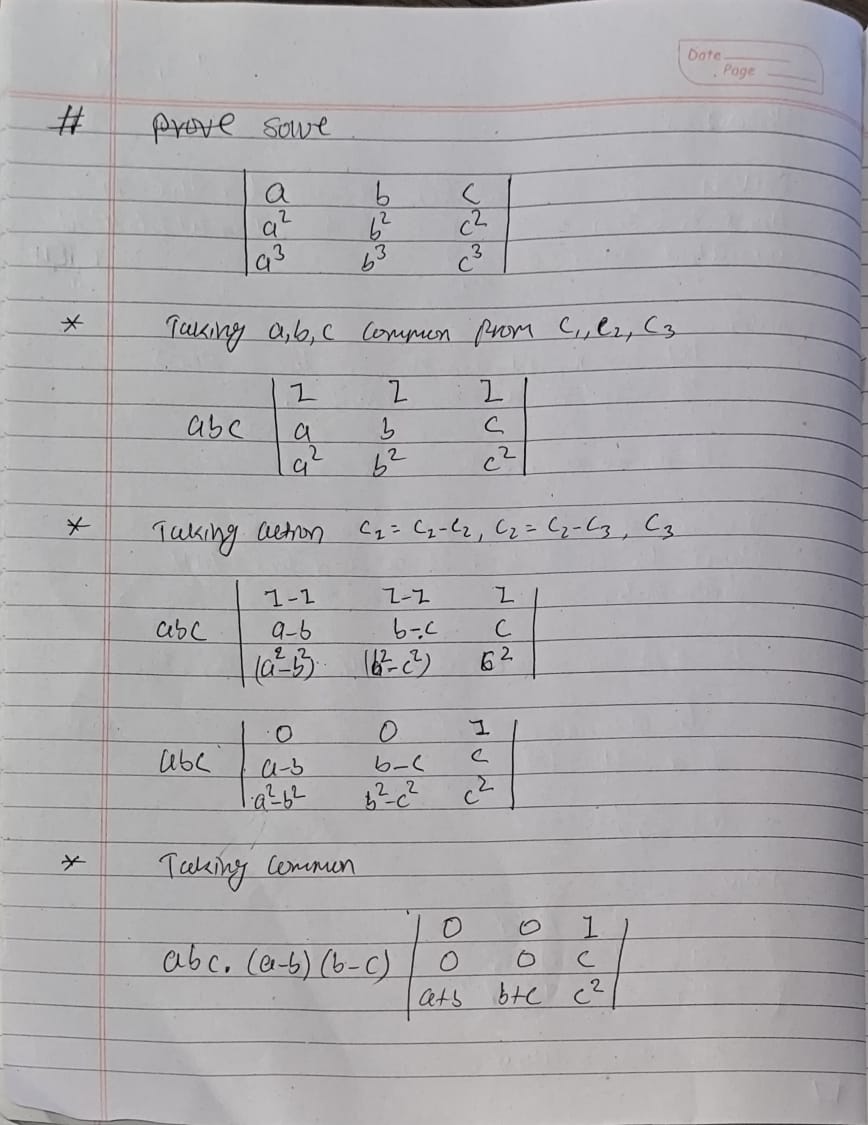 Date
Page
# prove sowe
| a b c |
| a² b² c² |
| a³ b³ c³ |
* Taking a,b,c common from C₁, C₂, C₃
| 1 1 1 |
abc | a b c |
| a² b² c² |
* Taking action C₁ = C₁-C₂, C₂ = C₂-C₃, C₃
| 1-1 1-1 1 |
abc | a-b b-c c |
| (a²-b²) (b²-c²) c² |
| 0 0 1 |
abc | a-b b-c c |
| a²-b² b²-c² c² |
* Taking common
| 0 0 1 |
abc. (a-b) (b-c) | 0 0 c |
| a+b b+c c² |